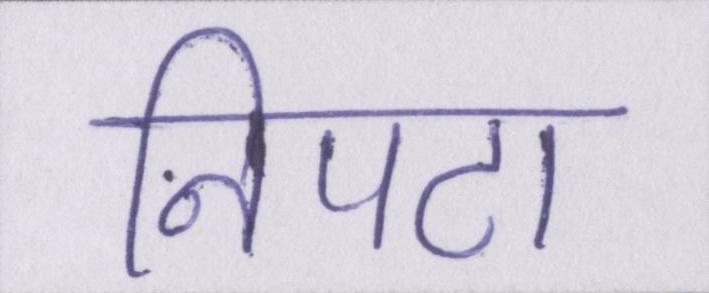 निपटा